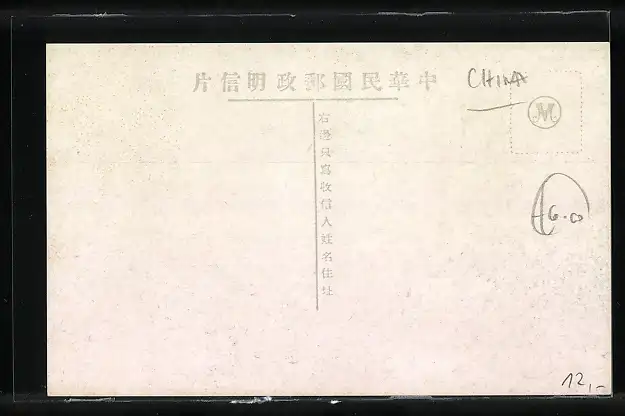 中華民國郵政明信片
CHINA
M
右邊只寫收信人姓名住址
12,-